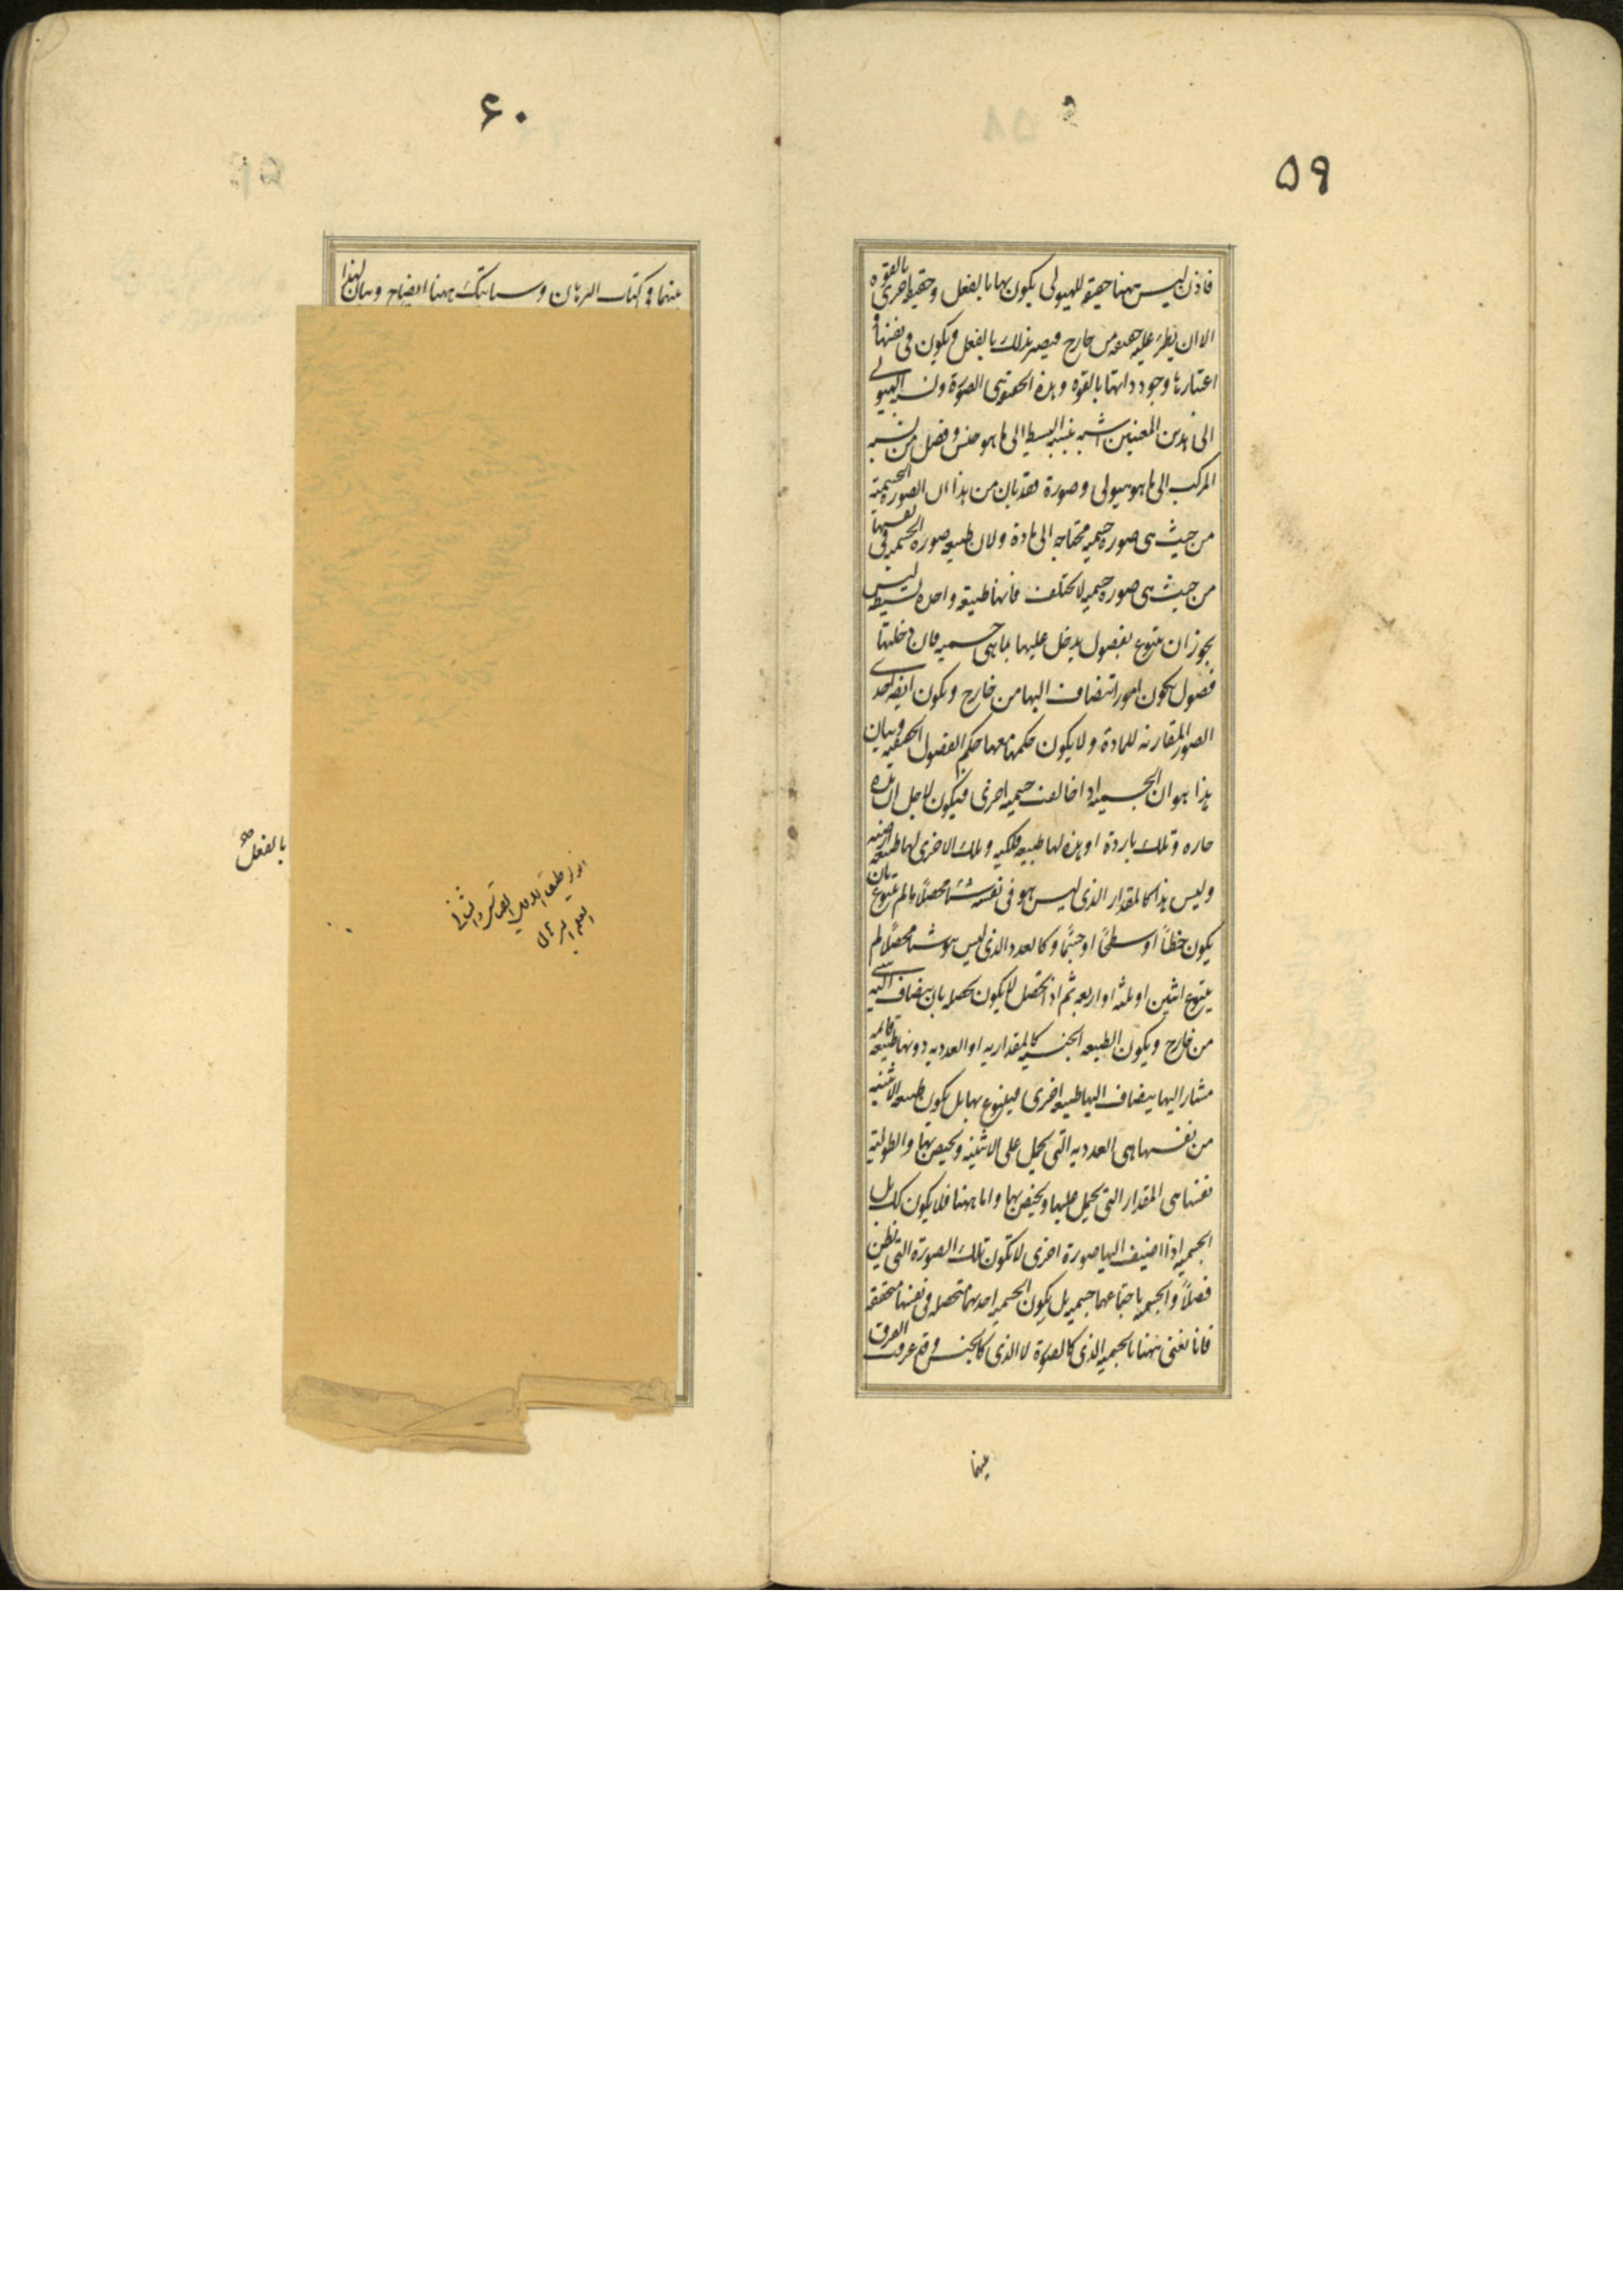 ۵۹
فاذن ليس ههنا حقيقة للهيولى يكون بها بالفعل وحقيقة اخرى بالقوه
الا ان يطرء عليه حقيقه من خارج فيصير بذلك بالفعل ويكون في نفسها و
اعتبار ها وجود ذاتها بالقوه وهذه الحقيقة هى الصورة ونسبة الهيولى
الى هذين المعنيين اشبه بنسبة البسيط الى ما هو جنس وفصل من نسبه
المركب الى ما هو هيولى وصورة فقد بان من هذا ان الصوره الجسميه
من حيث هى صوره جسميه محتاجه الى مادة ولان طبيعه صوره الجسميه فى نفسها
من حيث هى صوره جسميه لا تختلف فانها طبيعة واحده بسيطه ليس
يجوز ان يتنوع بفصول يدخل عليها بما هى جسميه فان دخلتها
فصول يكون امورا تنضاف اليها من خارج ويكون ايضا احدى
الصور المقارنه للمادة ولا يكون حكمها معها حكم الفصول الحقيقيه وبيان
هذا هو ان الجسميه اذا خالفت جسميه اخرى فيكون لاجل ان هذه
حاره وتلك باردة او هذه لها طبيعه فلكيه وتلك الاخرى لها طبيعه ارضيه
وليس هذا كالمقدار الذى ليس هو فى نفسه شيئا محصلاً ما لم يتنوع بان
يكون خطاً او سطحًا او جسمًا وكالعدد الذى ليس هو شيئا محصلاً ما لم
يتنوع اثنين او ثلثه او اربعه ثم اذا تحصل لا يكون تحصله بان ينضاف اليه شى
من خارج ويكون الطبيعه الجنسيه كالمقداريه او العدديه دونها طبيعه قائمه
مشار اليها ينضاف اليها طبيعه اخرى فيتنوع بها بل يكون طبيعه الاثنينيه
من نفسها هى العدديه التى يحمل على الاثنينيه ويختص بها والطوليه
نفسها هى المقدار التى يحمل عليها ويختص بها واما ههنا فلا يكون كك بل
الجسميه اذا اضيف اليها صورة اخرى لا تكون تلك الصورة التى تظن
فصلاً والجسميه باجتماعهما جسميه بل يكون الجسميه احديهما متحصله فى نفسها متحققه
فانا نعنى ههنا بالجسميه الذى كالصورة لا الذى كالجنس وقد عرفت الفرق
بينهما
۶۰
بينهما فى كتاب البرهان وسياتيك ههنا ايضاح وبيان لهذا
بالفعل